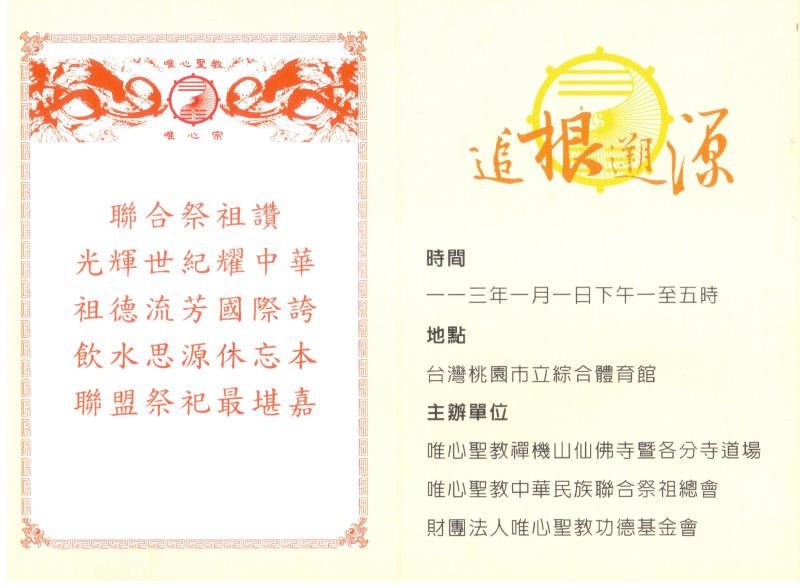 唯心聖教
唯心宗
聯合祭祖讚
光輝世紀耀中華
祖德流芳國際誇
飲水思源休忘本
聯盟祭祀最堪嘉
追根遡源
時間
一一三年一月一日下午一至五時
地點
台灣桃園市立綜合體育館
主辦單位
唯心聖教禪機山仙佛寺暨各分寺道場
唯心聖教中華民族聯合祭祖總會
財團法人唯心聖教功德基金會